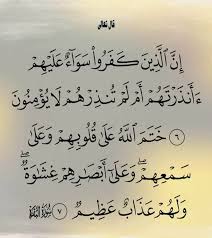 قال تعالى
إِنَّ الَّذِينَ كَفَرُوا۟ سَوَآءٌ عَلَيْهِمْ
ءَأَنذَرْتَهُمْ أَمْ لَمْ تُنذِرْهُمْ لَا يُؤْمِنُونَ
٦ خَتَمَ اللَّهُ عَلَىٰ قُلُوبِهِمْ وَعَلَىٰ
سَمْعِهِمْ ۖ وَعَلَىٰٓ أَبْصَٰرِهِمْ غِشَٰوَةٌ ۖ
وَلَهُمْ عَذَابٌ عَظِيمٌ ٧ سورة البقرة